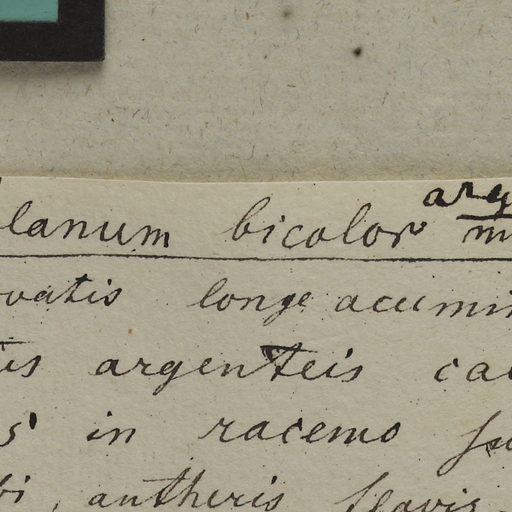 arg
lanum bicolor m
ovatis longe acumin
tis argenteis ca
s in racemo su
bi, antheris flavis